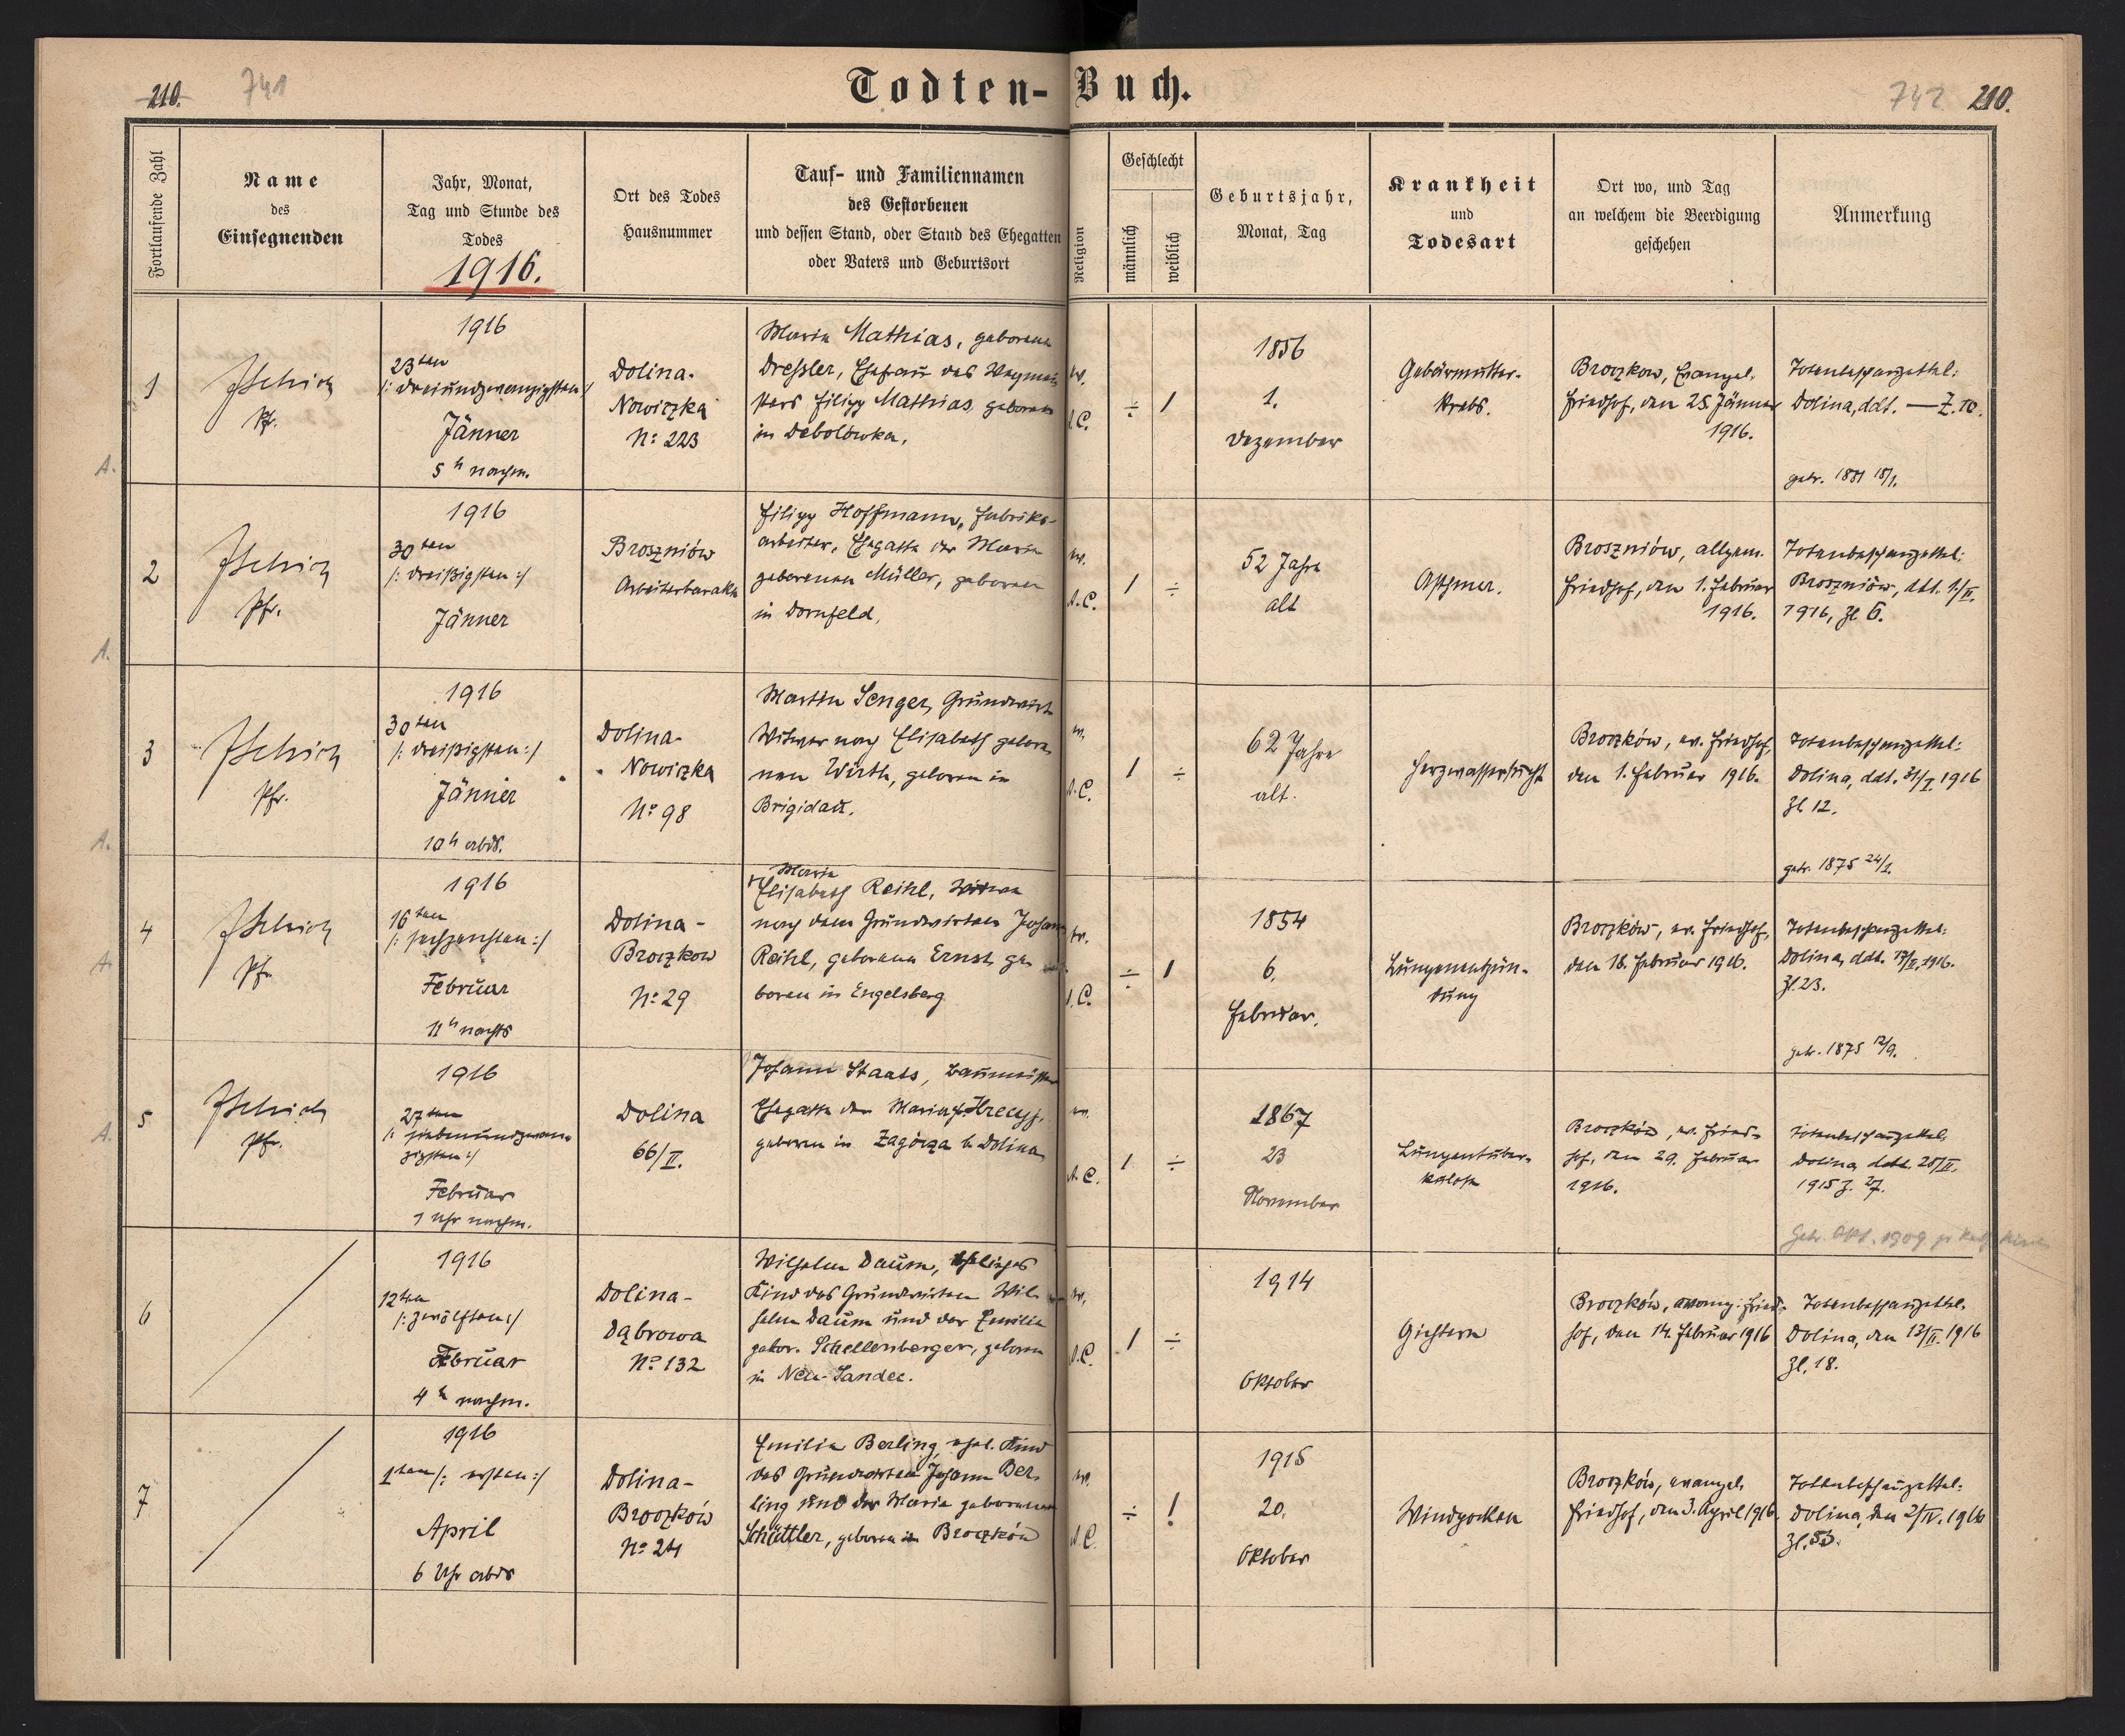 210. 741
Todten-Buch.
742 210.
Fortlaufende Zahl
Name
des
Einsegnenden
Jahr, Monat,
Tag und Stunde des
Todes
1916.
Ort des Todes
Hausnummer
Tauf- und Familiennamen
des Gestorbenen
und dessen Stand, oder Stand des Ehegatten
oder Vaters und Geburtsort
Religion
Geschlecht
männlich
weiblich
Geburtsjahr,
Monat, Tag
Krankheit
und
Todesart
Ort wo, und Tag
an welchem die Beerdigung
geschehen
Anmerkung
A.
1
Pf.
1916
23ten
/: dreiundzwanzigsten :/
Jänner
5 h nachm.
Dolina-
Nowiczka
No: 223
Maria Mathias, geborene
Dressler, Ehefrau des Wegmei
sters Filipp Mathias, geboren
in Debolówka.
A.C.
÷ 1
1856
1.
Dezember
Gebärmutter-
krebs.
Broczkow, Evangel.
Friedhof, den 25. Jänner
1916.
Totenbeschauzettel:
Dolina, ddt. — Z. 10.
getr. 1881 18/1.
A.
2
Pfr.
1916
30ten
/: dreißigsten :/
Jänner
Broszniów
Arbeiterbarake
Filipp Hoffmann, Fabriks-
arbeiter, Ehegatte der Maria
geborenen Müller, geboren
in Dornfeld.
A.C.
1 ÷
52 Jahre
alt
Asthma.
Broszniów, allgem.
Friedhof, den 1. Februar
1916.
Totenbeschauzettel:
Broszniów, ddt. 1./II.
1916, Zl 6.
A.
3
Pfr.
1916
30ten
/: dreißigsten :/
Jänner
10 h abds.
Dolina-
Nowiczka
No: 98
Martin Senger, Grundwirt
Witwer nach Elisabeth gebore
nen Wirth, geboren in
Brigidau.
A.C.
1 ÷
62 Jahre
alt.
Herzwassersucht
Broczków, ev. Friedhof,
den 1. Februar 1916.
Totenbeschauzettel:
Dolina, ddt. 31/I. 1916
Zl 12.
getr. 1875 24/1.
A.
4
Pfr.
1916
16ten
/: sechzehnten :/
Februar
11 h nachts
Dolina-
Broczkow
No: 29
Maria
Elisabeth Reihl, Witwe
nach dem Grundwirten Johann
Reihl, geborene Ernst, ge
boren in Engelsberg
A.C.
÷ 1
1854
6.
Februar.
Lungenentzün-
dung
Broczków, ev. Friedhof,
den 18. Februar 1916.
Totenbeschauzettel:
Dolina, ddt. 17/II. 1916.
Zl. 23.
getr. 1875 12/9.
A.
5
Pfr.
1916
27ten
/: siebenundzwan-
zigsten :/
Februar
1 Uhr nachm.
Dolina
66/II.
Johann Staats, Baumeister
Ehegatte der Maria
geboren in Zagórza b. Dolina
A.C.
1 ÷
1867
23
November
Lungentuber-
kulose
Broczków, ev. Fried-
hof, den 29. Februar
1916.
Totenbeschauzettel,
Dolina, ddt. 28/II.
1915 Z. 27.
6
1916
12ten
/: zwölften :/
Februar
4 h nachm.
Dolina-
Dąbrowa
No: 132
Wilhelm Daum, eheliches
Kind des Grundwirten Wil-
helm Daum und der Emilie
gebor. Schellenberger, geboren
in Neu-Sandec.
A.C.
1 ÷
1914
Oktober
Gichtern
Broczków, evang. Fried-
hof, den 14. Februar 1916
Totenbeschauzettel,
Dolina, den 13/II. 1916
Zl. 18.
7
1916
1ten /: ersten :/
April
6 Uhr abds
Dolina-
Broczków
No: 24
Emilie Berling, ehel. Kind
des Grundwirten Johann Ber-
ling und der Maria geborenen
Schüttler, geboren in Broczków
A.C.
÷ 1
1915
20.
Oktober
Windpocken
Broczków, evangel.
Friedhof, den 3. April 1916.
Totenbeschauzettel:
Dolina, den 2/IV. 1916